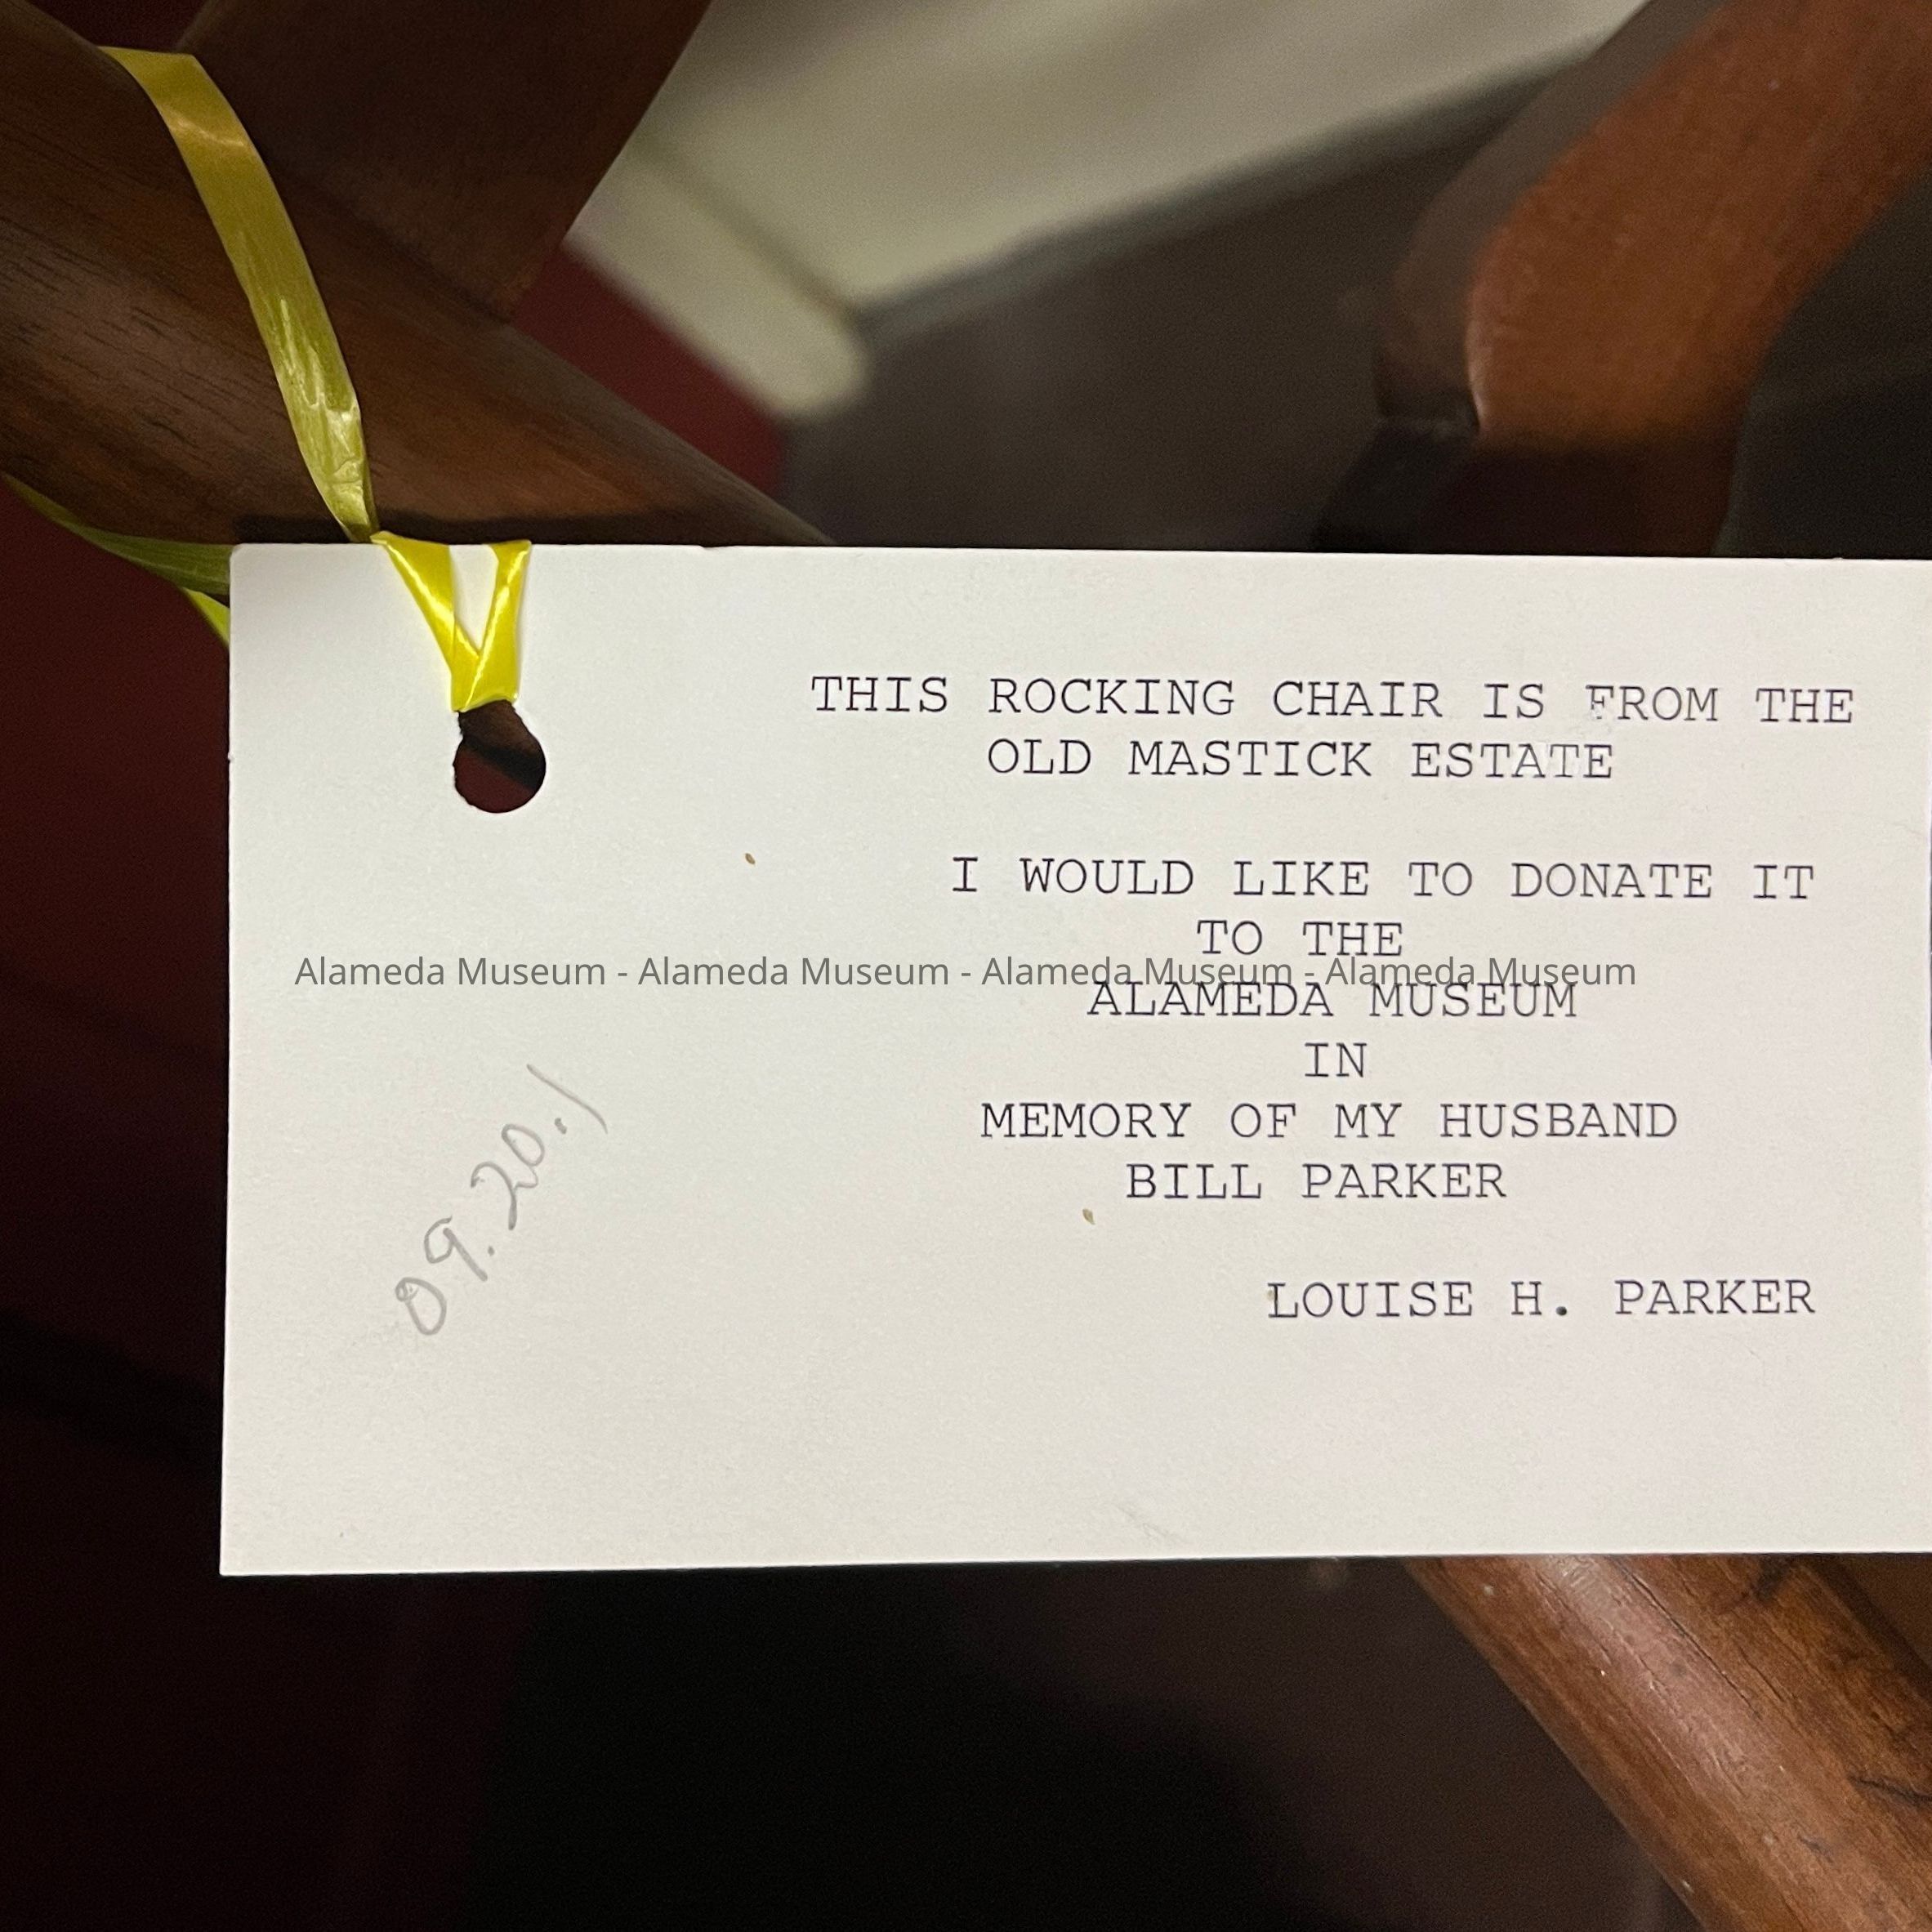 THIS ROCKING CHAIR IS FROM THE
OLD MASTICK ESTATE
I WOULD LIKE TO DONATE IT
TO THE
Alameda Museum - Alameda Museum - Alameda Museum - Alameda Museum
ALAMEDA MUSEUM
IN
MEMORY OF MY HUSBAND
BILL PARKER
LOUISE H. PARKER
09.20.1